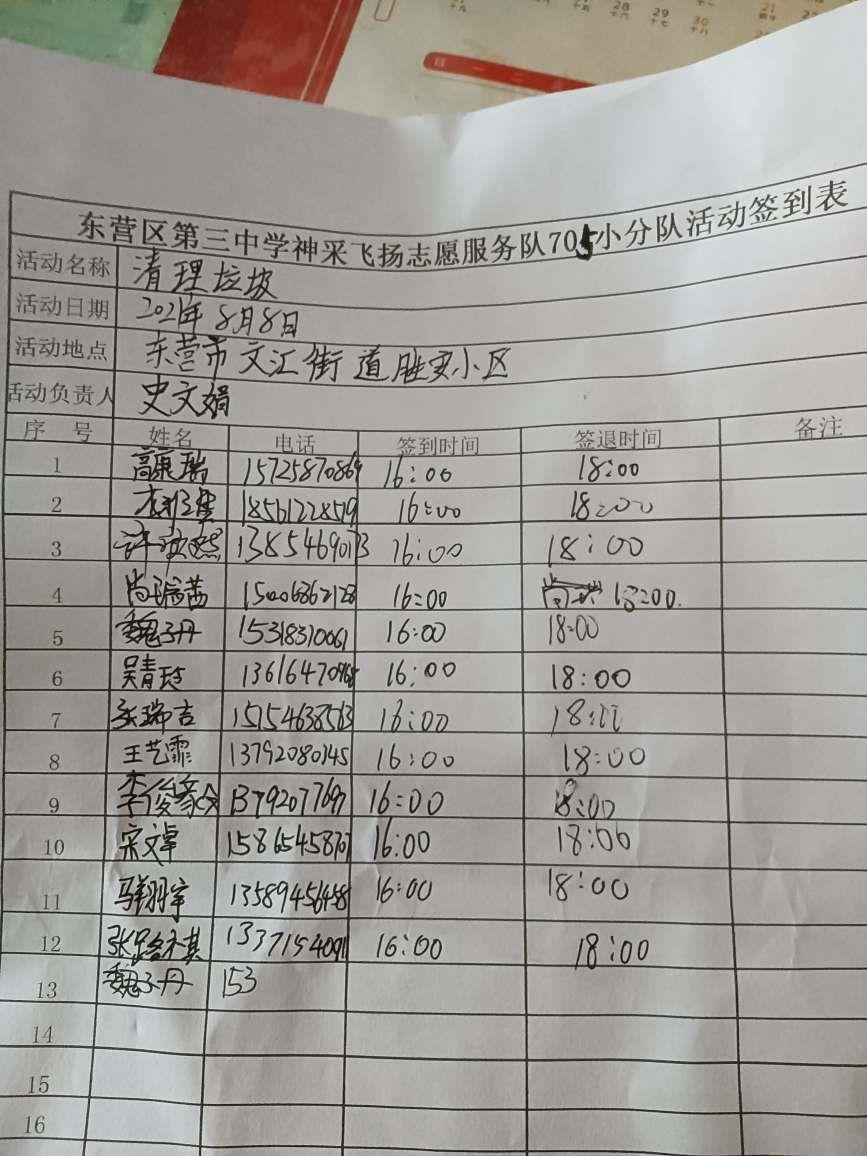 东营区第三中学神采飞扬志愿服务队705小分队活动签到表
活动名称 清理垃圾
活动日期 2021年8月8日
活动地点 东营市文汇街道胜安小区
活动负责人 史文娟
序号 姓名 电话 签到时间 签退时间 备注
1 高康瑞 15725870869 16:00 18:00
2 18561228519 16:00 18:00
3 13854690173 16:00 18:00
4 尚瑞茜 16:00 18:00.
5 魏子丹 15318370061 16:00 18:00
6 吴青 16:00 18:00
7 张瑞吉 15154638563 16:00
8 王艺霏 13792080145 16:00 18:00
9 李俊 13792077697 16:00 18:00
10 宋文卓 16:00 18:00
11 马翔宇 13589456458 16:00 18:00
12 张路祺 13371540911 16:00 18:00
13 魏子丹 153
14
15
16